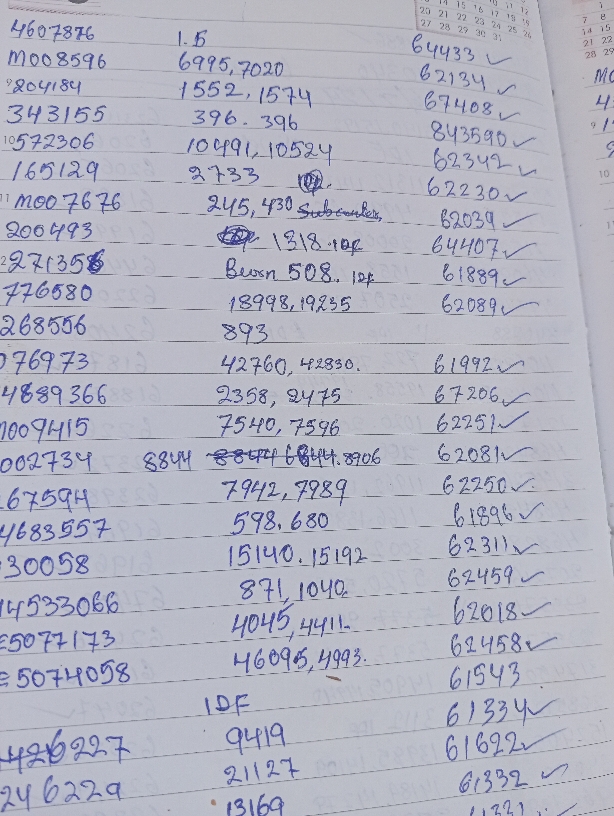 4607876 I.B 64433 ✓
M008596 6995,7020 62134 ✓
204184 1552, 1574 67408 ✓
343155 396. 396 843590 ✓
572306 10491, 10524 62342 ✓
165129 2733 62230 ✓
M007676 245, 430 62039 ✓
200493 1318.IDF 64407 ✓
271356 508. IDF 61889 ✓
776580 18998, 19235 62089 ✓
268556 893
76973 42760, 42830. 61992 ✓
4889366 2358, 2475 67206 ✓
009415 7540, 7596 62251 ✓
002734 8844 8906 62081 ✓
67594 7942, 7989 62250 ✓
4683557 598. 680 61896 ✓
30058 15140. 15192 62311 ✓
14533066 871, 1040 62459 ✓
5077173 4045, 4411 62018 ✓
5074058 46095, 4993. 62458 ✓
61543
IDF 61334 ✓
426227 9419 61622 ✓
246229 21127 61332 ✓
13169